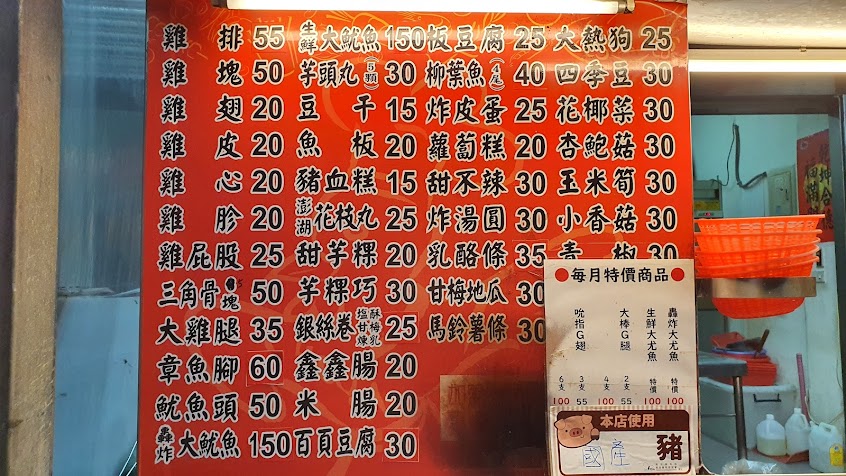 雞排 55
雞塊 50
雞翅 20
雞皮 20
雞心 20
雞胗 20
雞屁股 25
三角骨 塊 50
大雞腿 35
章魚腳 60
魷魚頭 50
轟炸大魷魚 150
生鮮大魷魚 150
芋頭丸(5顆) 30
豆干 15
魚板 20
豬血糕 15
澎湖花枝丸 25
甜芋粿 20
芋粿巧 30
銀絲卷 25
鑫鑫腸 20
米腸 20
百頁豆腐 30
板豆腐 25
柳葉魚 40
炸皮蛋 25
蘿蔔糕 20
甜不辣 30
炸湯圓 30
乳酪條 35
甘梅地瓜 30
馬鈴薯條 30
大熱狗 25
四季豆 30
花椰菜 30
杏鮑菇 30
玉米筍 30
小香菇 30
青椒 30
每月特價商品
轟炸大尤魚 特價 100
生鮮大尤魚 特價 100
大棒G腿 2支 55
4支 100
吮指G翅 3支 55
6支 100
本店使用
國產豬